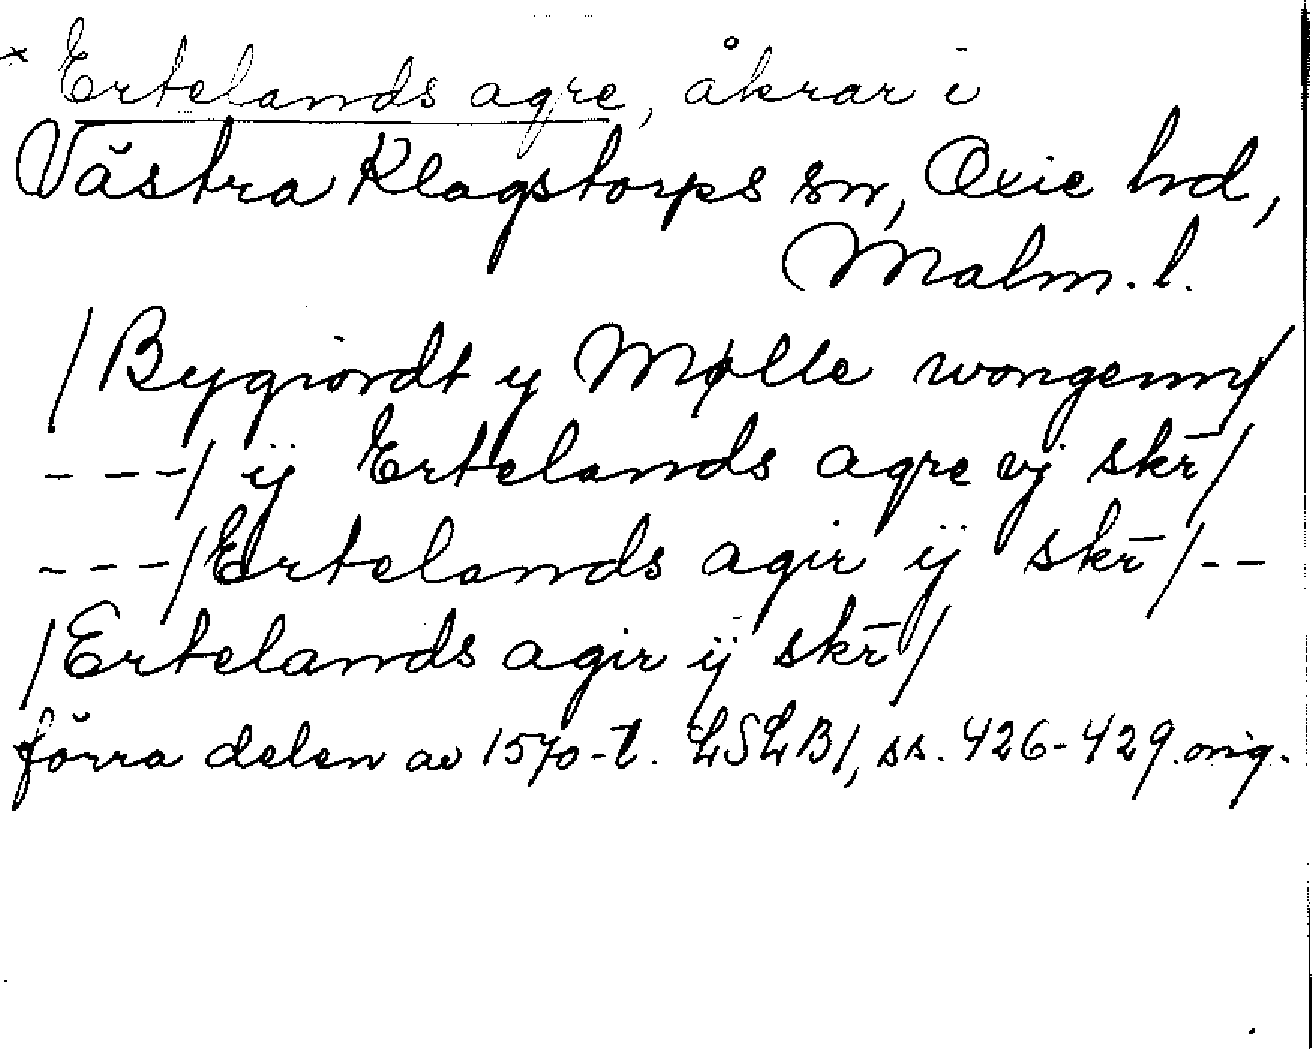 * Ertelands agre, åkrar i
Västra Klagstorps sn, Oxie hd,
Malm. l.
/Bygiordt y Mølle wongenn/
---/ ij Ertelands agre vj skr̄/
---/Ertelands agir ij skr̄/--
/Ertelands agir ij skr̄/
förra delen av 1570-t. LSLB1, ss. 426-429. orig.